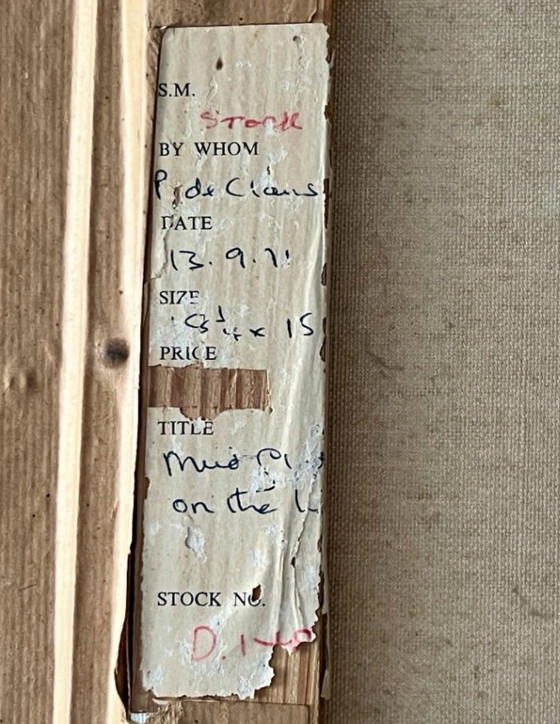 S.M.
Stock
BY WHOM
P. de Claus
DATE
13. 9. 71
SIZE
x 15
PRICE
TITLE
on the
STOCK NO.
D.